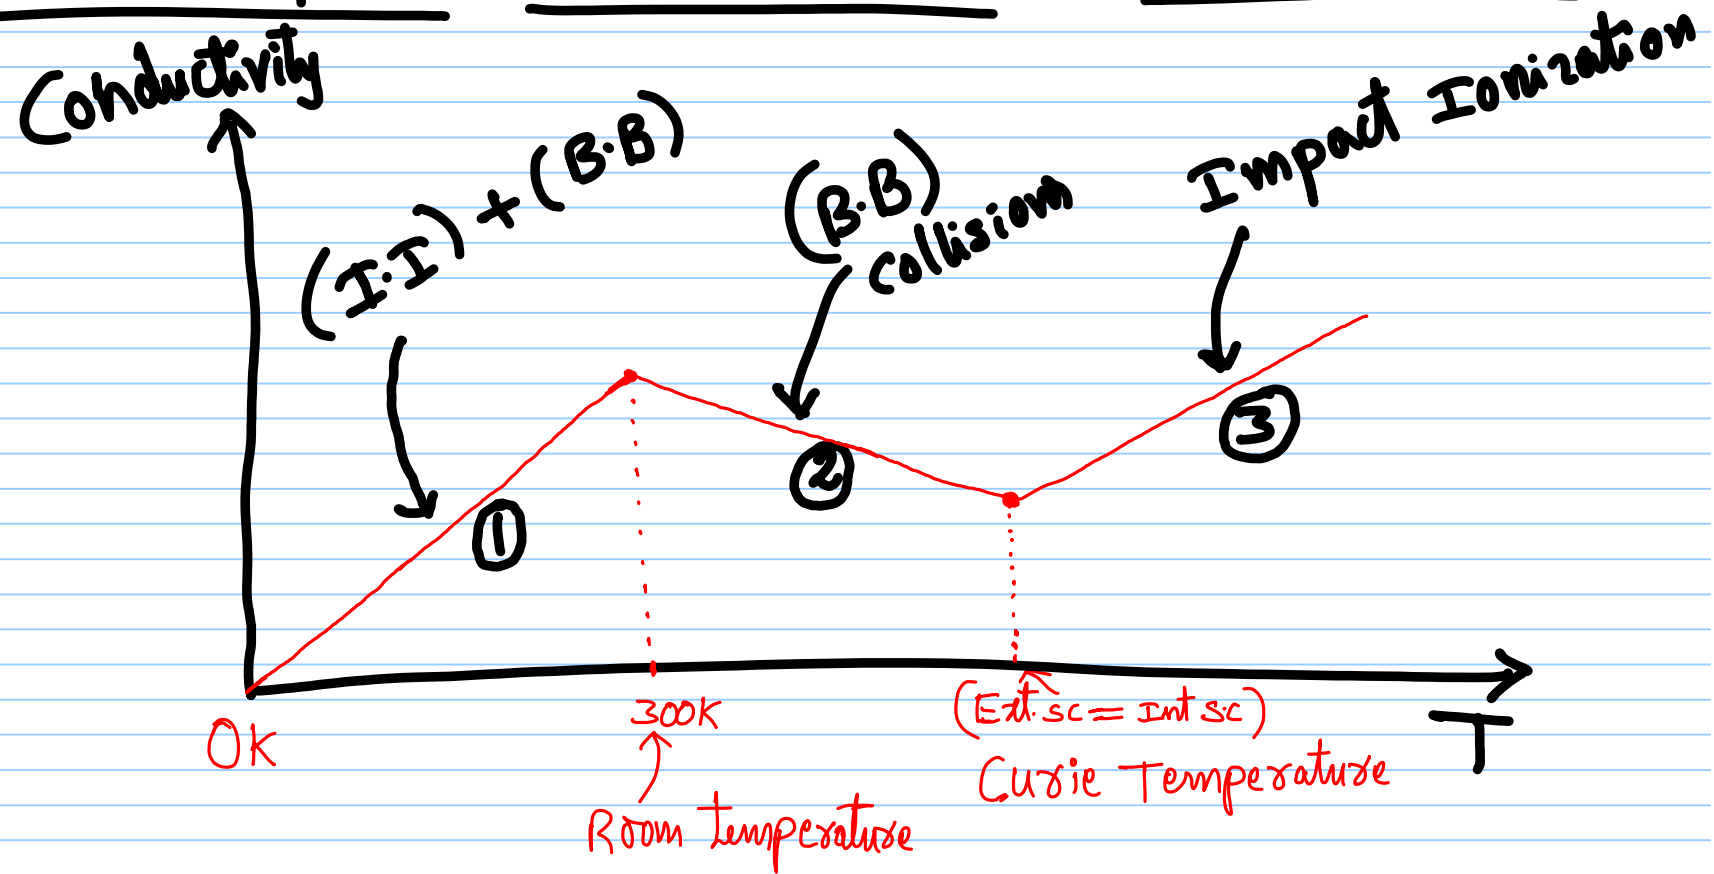 Conductivity
(I.I) + (B.B)
(B.B)
Collision
Impact Ionization
1
2
3
0K
300K
Room temperature
(Ext.sc = Int s.c)
Curie Temperature
T